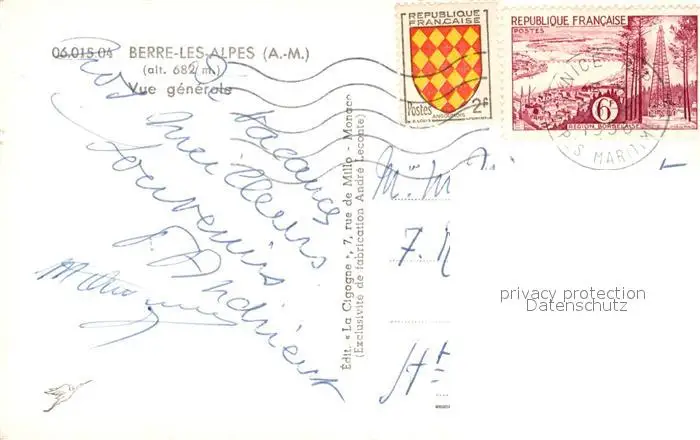 06.015.04 BERRE-LES-ALPES (A.-M.)
(alt. 682 m.)
Vue générale
De Vacances
nos meilleurs
souvenirs
Andrieux
Édit. « La Cigogne », 7, rue de Millo - Monaco
(Exclusivité de fabrication André Leconte)
REPUBLIQUE
FRANÇAISE
Postes 2f
ANGOUMOIS
REPUBLIQUE FRANÇAISE
POSTES
6F
REGION BORDELAISE
NICE
MARIT
7.
privacy protection
Datenschutz